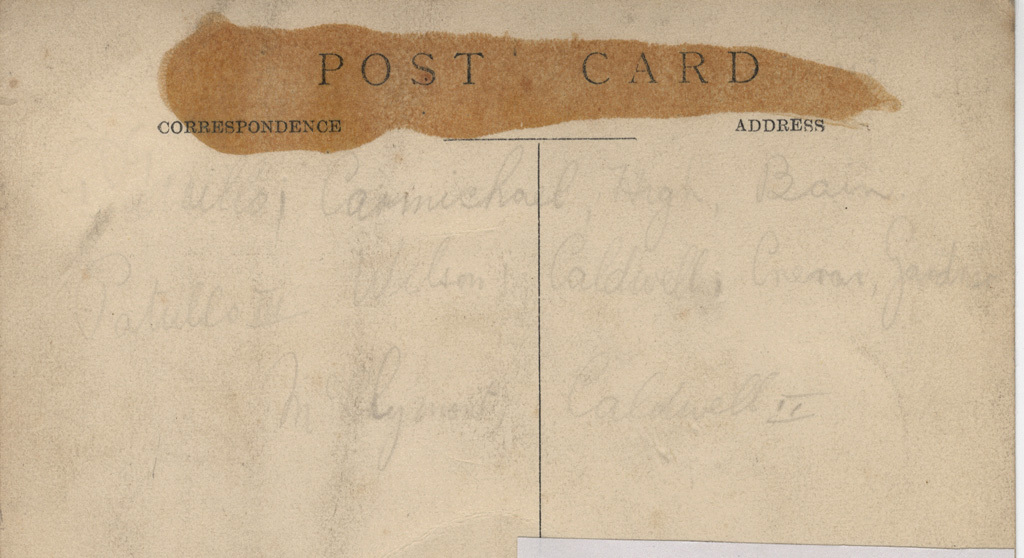 POST CARD
CORRESPONDENCE ADDRESS
Carmichael, High, Bain
Wilson, Caldwell, Gardner
Patullo II
Caldwell II